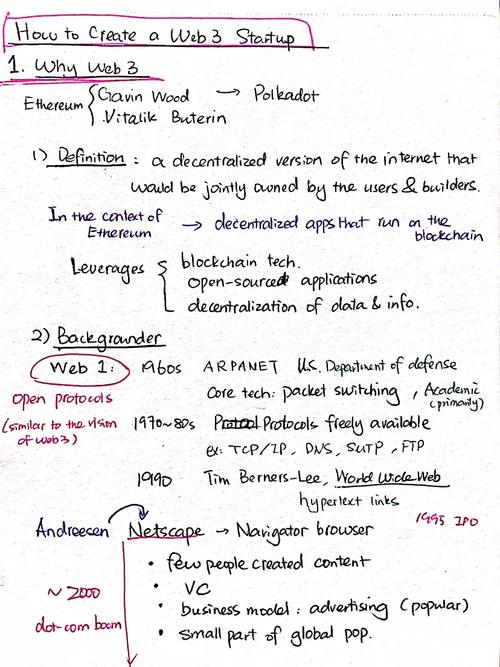 How to Create a Web 3 Startup
1. Why Web 3
Ethereum { Gavin Wood → Polkadot
Vitalik Buterin
1) Definition : a decentralized version of the internet that
would be jointly owned by the users & builders.
In the context of Ethereum → decentralized apps that run on the blockchain
Leverages { blockchain tech.
open-sourced applications
decentralization of data & info.
2) Backgrounder
Web 1: 1960s ARPANET U.S. Department of defense
open protocols
Core tech: packet switching , Academic (primarily)
(similar to the vision of web3)
1970~80s Protocols freely available
ex: TCP/IP, DNS, SMTP, FTP
1990 Tim Berners-Lee, World Wide Web
hypertext links
Andreesen Netscape → Navigator browser 1995 IPO
• few people created content
~ 2000
• VC
• business model : advertising (popular)
dot-com boom
• small part of global pop.